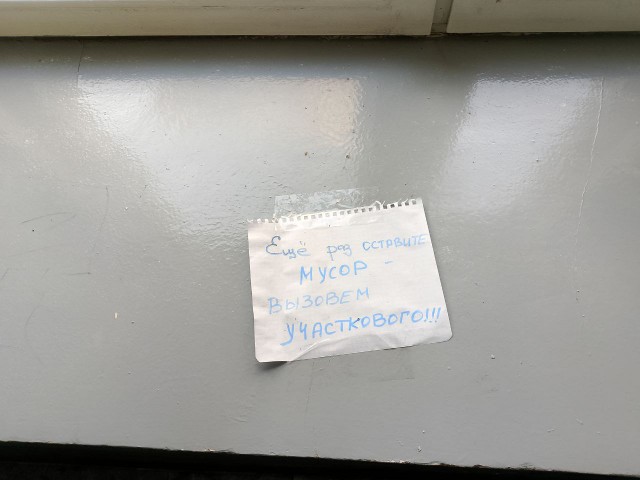 Ещё раз оставите
МУСОР -
ВЫЗОВЕМ
УЧАСТКОВОГО!!!